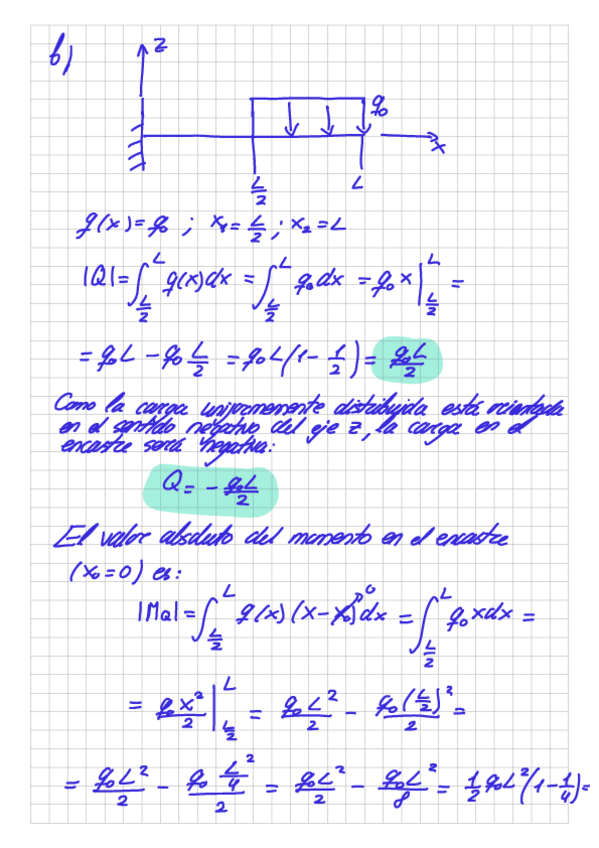 b)
z
q₀
x
L/2
L
q(x)=q₀ ; x₁=L/2 ; x₂=L
|Q|=∫_{L/2}^{L} q(x)dx = ∫_{L/2}^{L} q₀dx = q₀x|_{L/2}^{L} =
= q₀L - q₀ L/2 = q₀L(1 - 1/2) = q₀L/2
Como la carga uniformemente distribuida está orientada
en el sentido negativo del eje z, la carga en el
encastre será negativa:
Q = - q₀L/2
El valor absoluto del momento en el encastre
(x₀=0) es:
|M_Q|=∫_{L/2}^{L} q(x)(x-x₀)⁰dx = ∫_{L/2}^{L} q₀xdx =
= q₀x²/2|_{L/2}^{L} = q₀L²/2 - q₀(L/2)²/2 =
= q₀L²/2 - q₀ L²/4/2 = q₀L²/2 - q₀L²/8 = 1/2 q₀L²(1-1/4)=